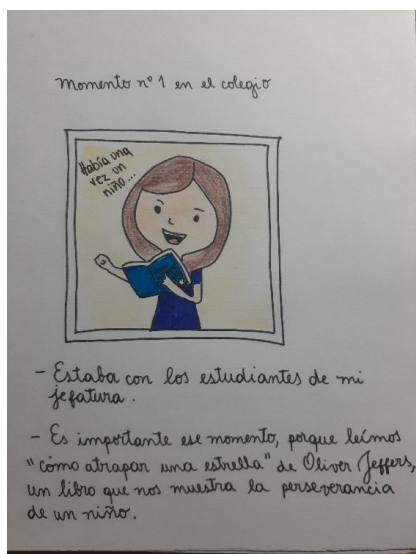 Momento nº 1 en el colegio
Había una
vez un
niño...
- Estaba con los estudiantes de mi
jefatura.
- Es importante ese momento, porque leímos
"cómo atrapar una estrella" de Oliver Jeffers,
un libro que nos muestra la perseverancia
de un niño.